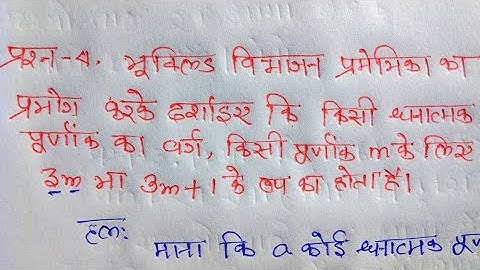 प्रश्न-4. यूक्लिड विभाजन प्रमेयिका का
प्रयोग करके दर्शाइए कि किसी धनात्मक
पूर्णांक का वर्ग, किसी पूर्णांक m के लिए
3m या 3m+1 के रूप का होता है।
हल: माना कि a कोई धनात्मक पू